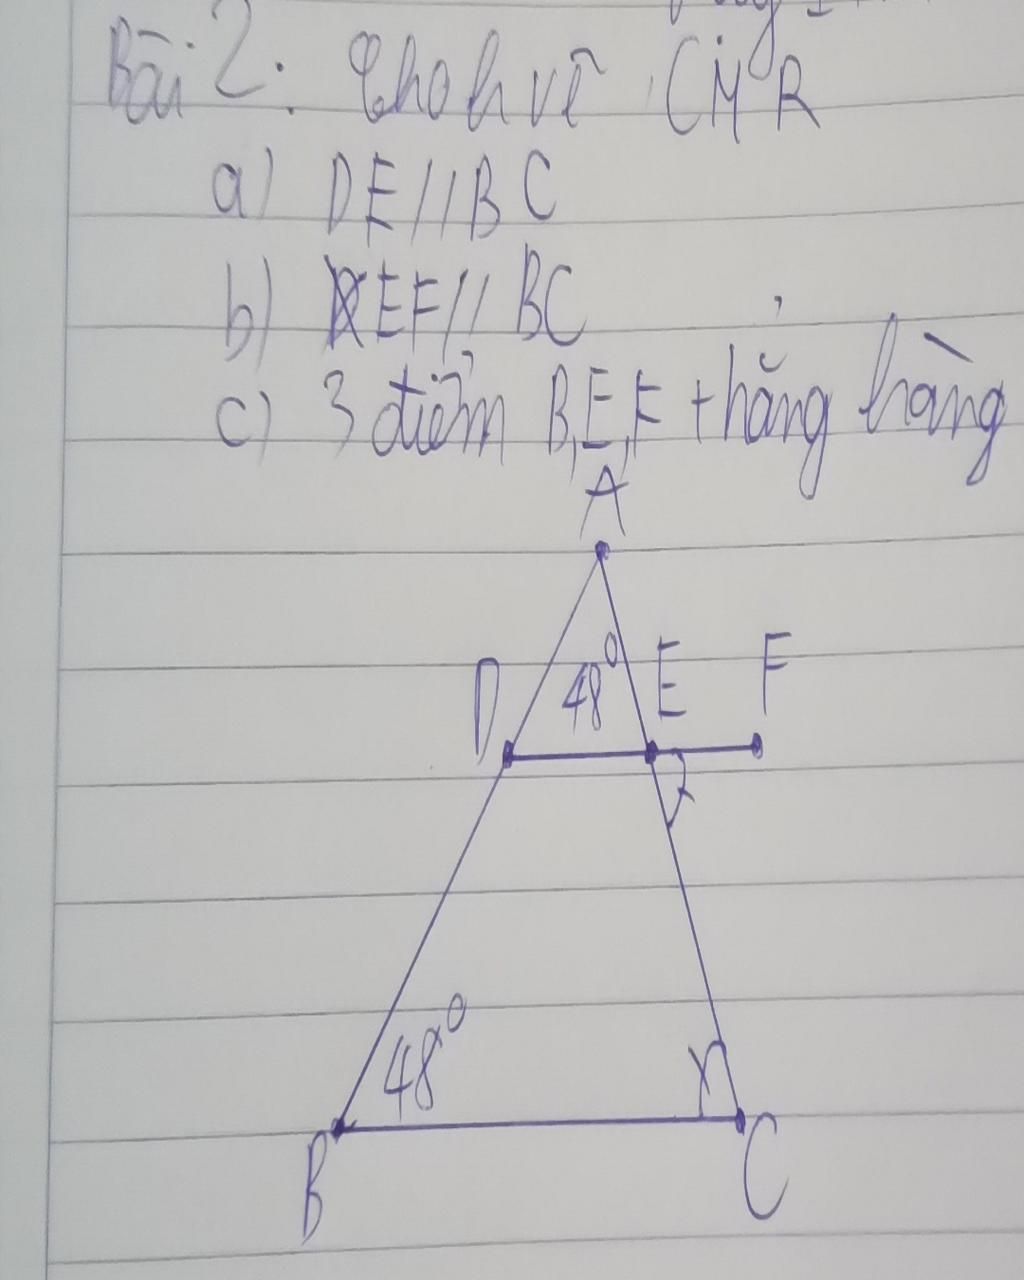 Bài 2: Cho h vẽ. CMR
a) DE//BC
b) EF// BC
c) 3 điểm B,E,F thẳng hàng
A
D 48° E F
48°
B C